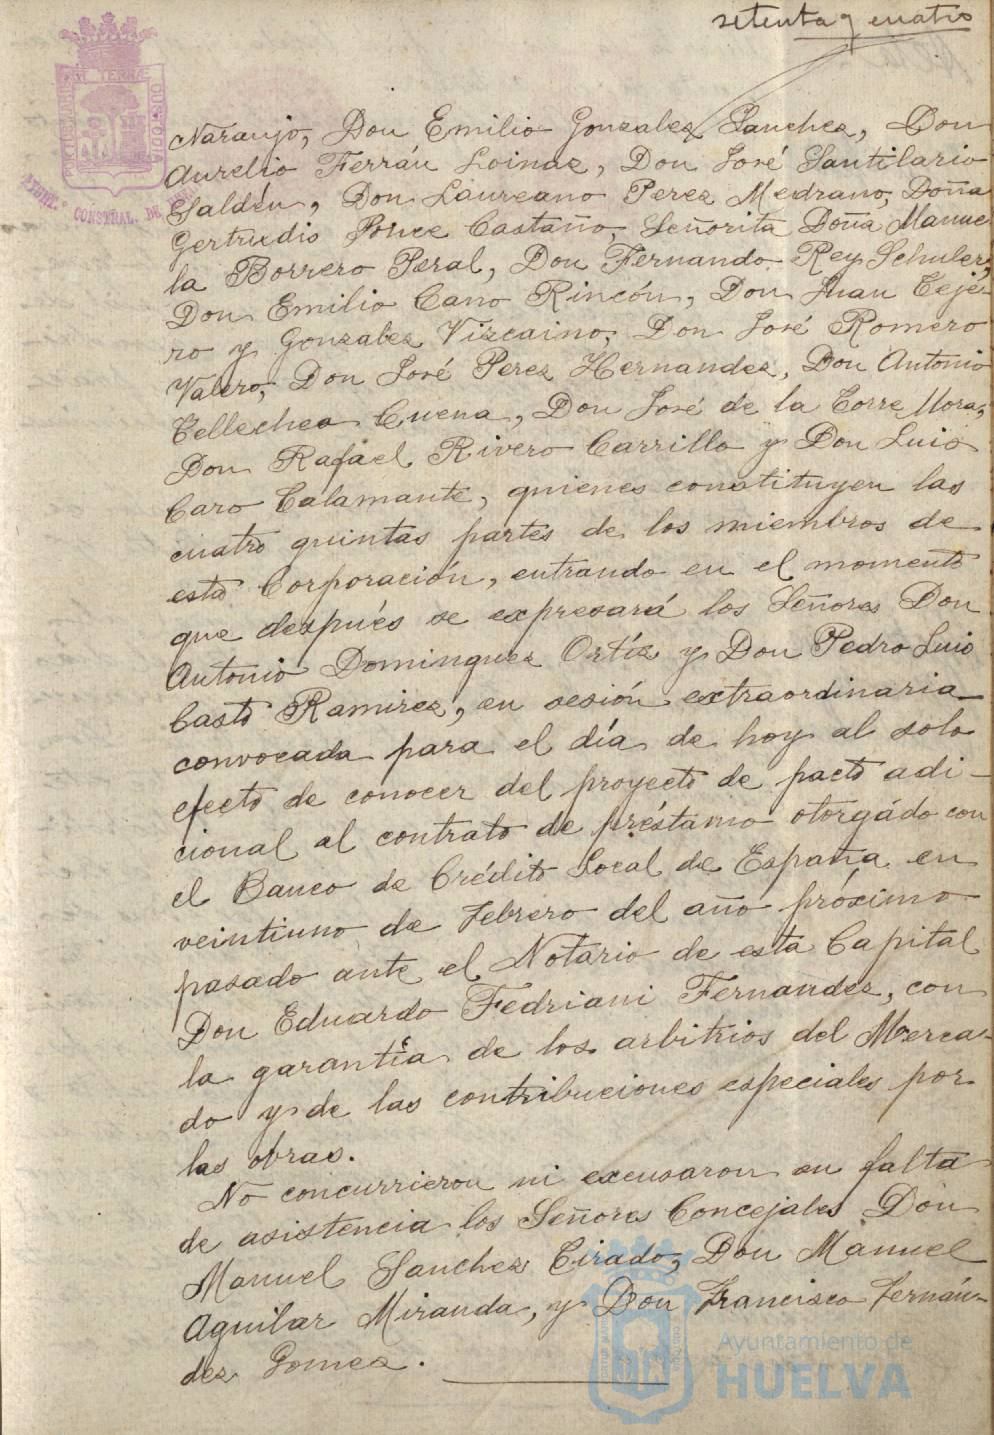 setenta y cuatro
Naranjo, Don Emilio Gonzalez Sanchez, Don
Aurelio Ferrán Loinaz, Don José Santilario
Saldén, Don Laureano Perez Medrano, Doña
Gertrudis Ponce Castaño, Señorita Doña Manue
la Borrero Peral, Don Fernando Rey Schuler,
Don Emilio Cano Rincón, Don Juan Teje-
ro y Gonzalez Vizcaino, Don José Romero
Valero, Don José Perez Hernandez, Don Antonio
Tellechea Cuena, Don José de la Torre Mora,
Don Rafael Rivero Carrillo y Don Luis
Caro Calamante, quienes constituyen las
cuatro quintas partes de los miembros de
esta Corporación, entrando en el momento
que después se expresará los Señores Don
Antonio Dominguez Ortíz y Don Pedro Luis
Casto Ramirez, en sesión extraordinaria
convocada para el día de hoy al solo
efecto de conocer del proyecto de pacto adi-
cional al contrato de préstamo otorgádo con
el Banco de Crédito Local de España en
veintiuno de Febrero del año próximo
pasado ante el Notario de esta Capital
Don Eduardo Fedriani Fernandez, con
la garantía de los arbitrios del Merca-
do y de las contribuciones especiales por
las obras.
No concurrieron ni excusaron su falta
de asistencia los Señores Concejales Don
Manuel Sanchez Tirado, Don Manuel
Aguilar Miranda, y Don Francisco Fernán-
dez Gomez.
Ayuntamiento de
HUELVA